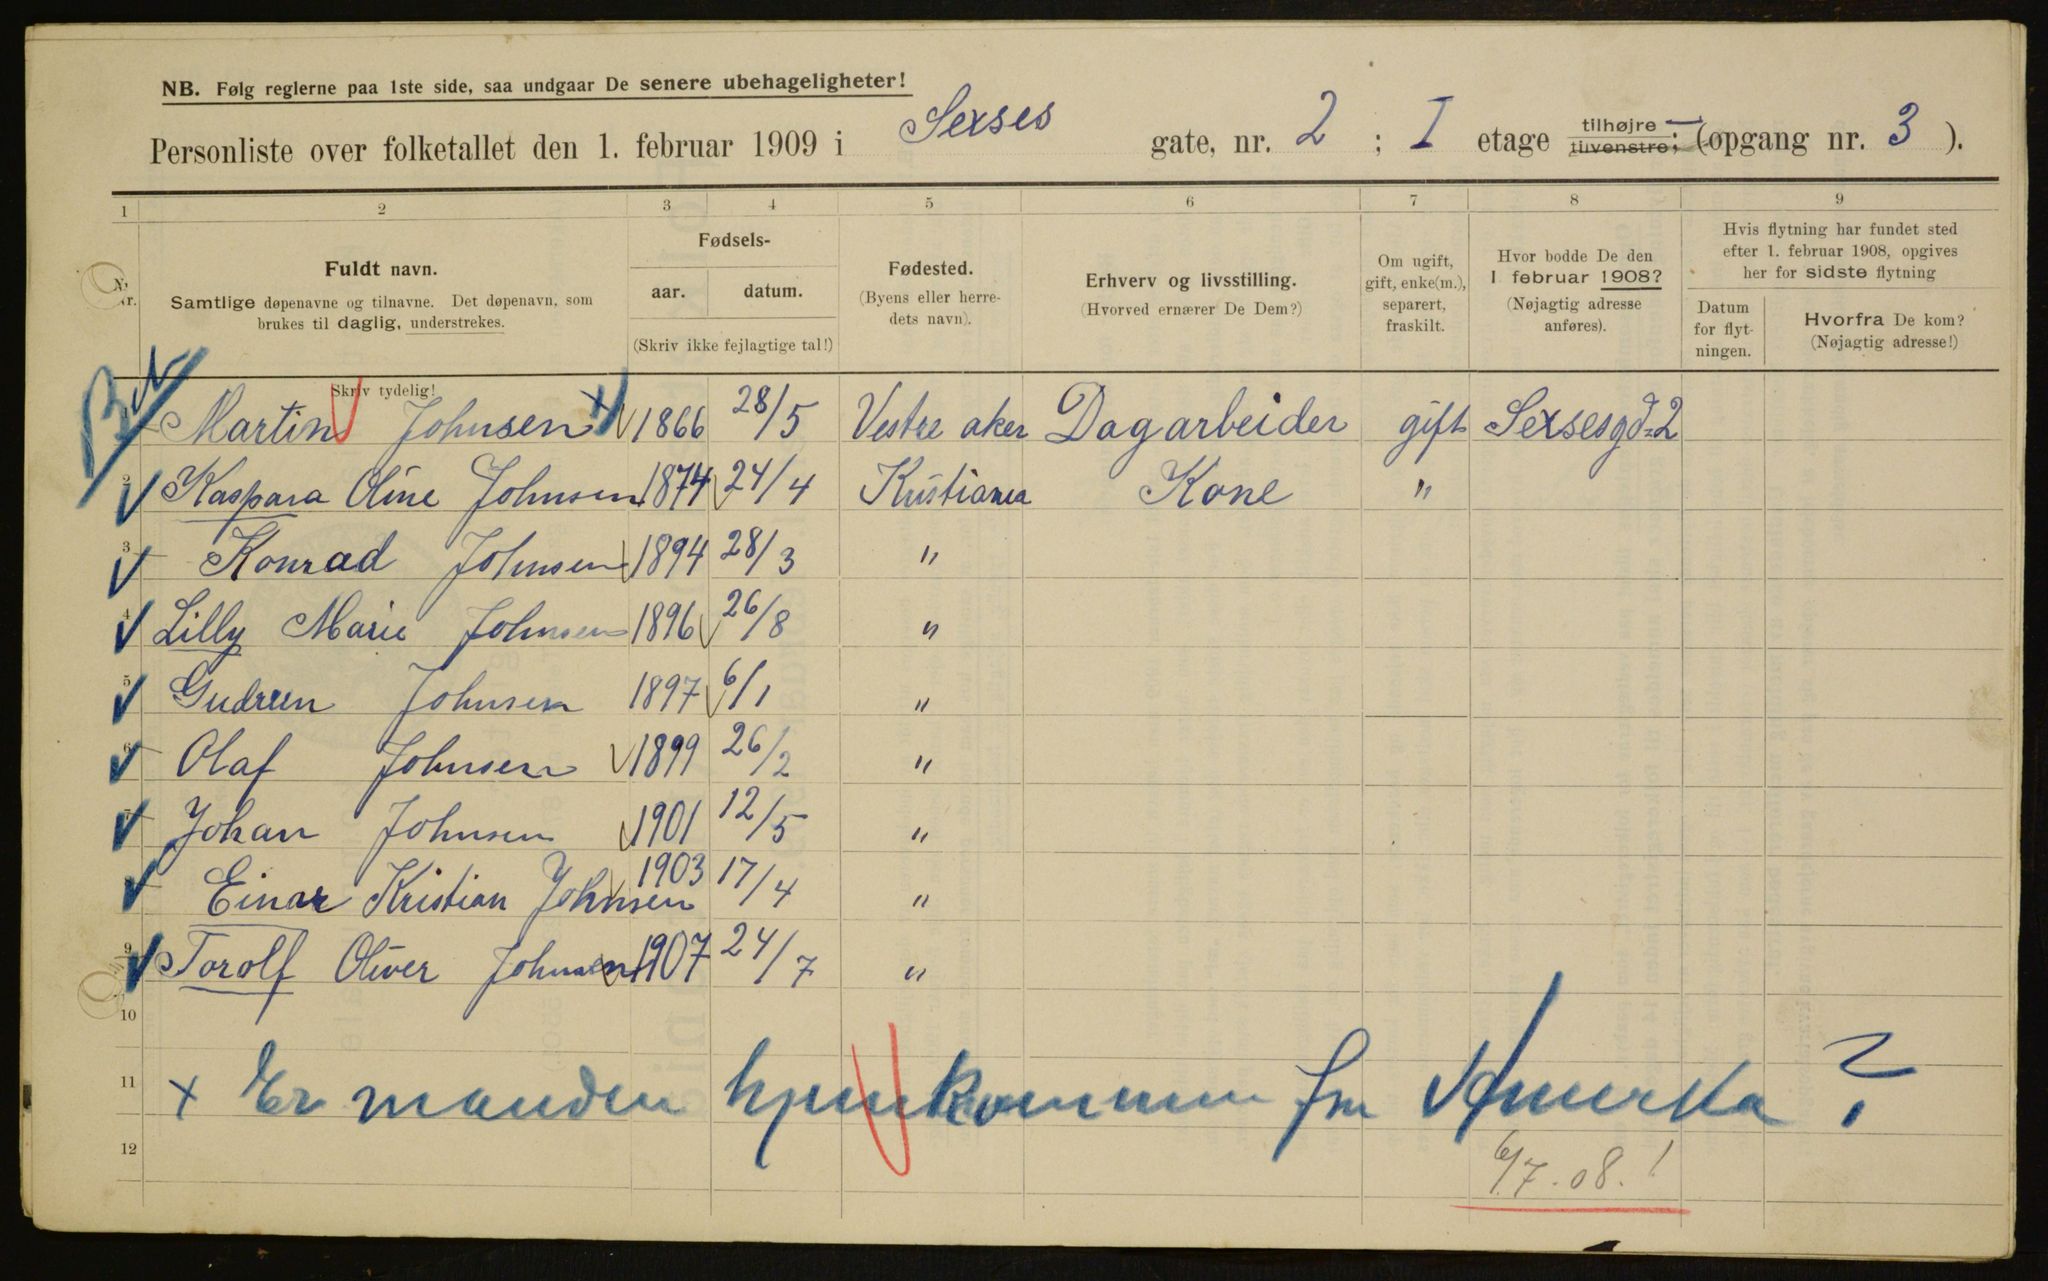 NB. Følg reglerne paa 1ste side, saa undgaar De senere ubehageligheter!
Personliste over folketallet den 1. februar 1909 i Sexses gate, nr. 2 ; I etage tilhøjre tilvenstre; (opgang nr. 3 ).
1 2 3 4 5 6 7 8 9
Fuldt navn.
Samtlige døpenavne og tilnavne. Det døpenavn, som
brukes til daglig, understrekes.
Fødsels-
aar. datum.
(Skriv ikke fejlagtige tal!)
Fødested.
(Byens eller herre-
dets navn).
Erhverv og livsstilling.
(Hvorved ernærer De Dem?)
Om ugift,
gift, enke(m.),
separert,
fraskilt.
Hvor bodde De den
1 februar 1908?
(Nøjagtig adresse
anføres).
Hvis flytning har fundet sted
efter 1. februar 1908, opgives
her for sidste flytning
Datum
for flyt-
ningen.
Hvorfra De kom?
(Nøjagtig adresse!)
Skriv tydelig!
Martin Johnsen x 1866 28/5 Vestre aker Dagarbeider gift Sexsesgd. 2
2 Kaspara Oline Johnsen 1874 24/4 Kristiania Kone "
3 Konrad Johnsen 1894 28/3 "
4 Lilly Marie Johnsen 1896 26/8 "
5 Gudrun Johnsen 1897 6/1 "
6 Olaf Johnsen 1899 26/2 "
7 Johan Johnsen 1901 12/5 "
Einar Kristian Johnsen 1903 17/4 "
9 Torolf Oliver Johnsen 1907 24/7 "
10
11 x Er manden hjemkommen fra Amerika ?
12 6/7.08.!